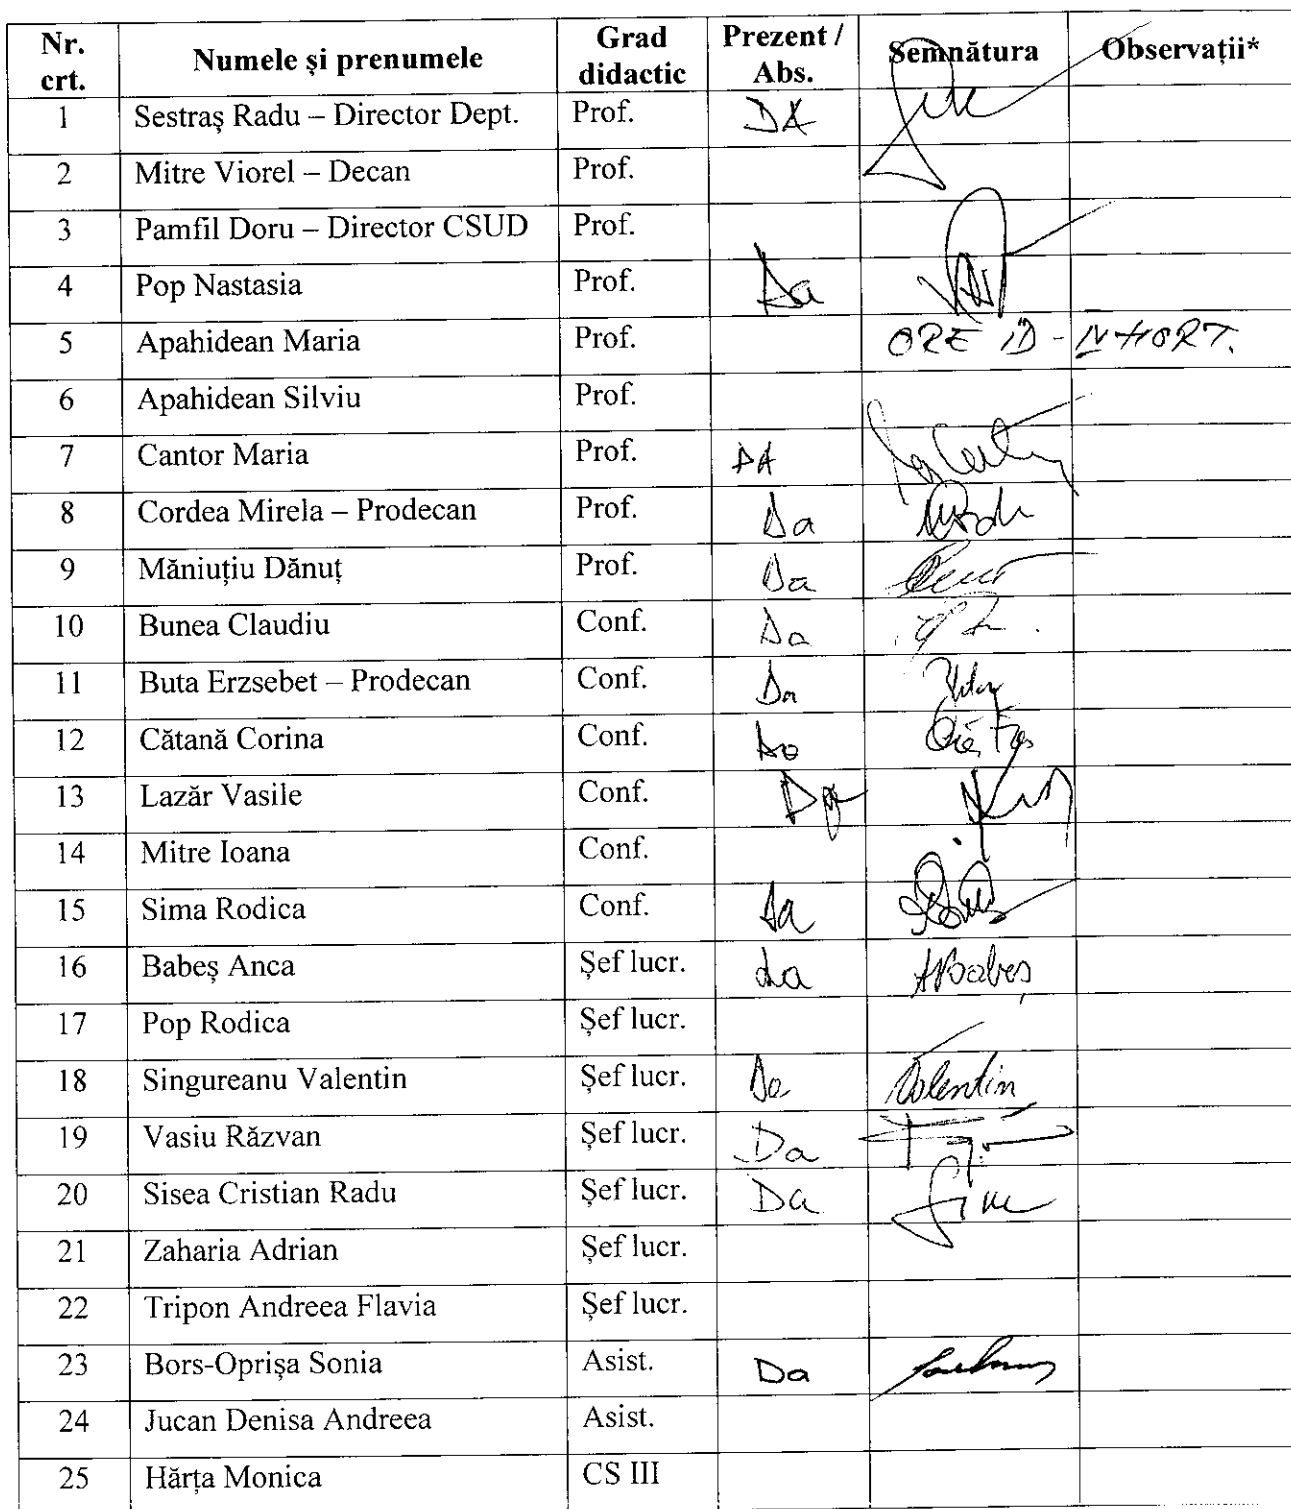 Nr. crt. Numele și prenumele Grad didactic Prezent / Abs. Semnătura Observații*
1 Sestraș Radu – Director Dept. Prof. DA
2 Mitre Viorel – Decan Prof.
3 Pamfil Doru – Director CSUD Prof.
4 Pop Nastasia Prof. Da
5 Apahidean Maria Prof. ORE ID - IV HORT.
6 Apahidean Silviu Prof.
7 Cantor Maria Prof. DA
8 Cordea Mirela – Prodecan Prof. Da
9 Măniuțiu Dănuț Prof. Da
10 Bunea Claudiu Conf. Da
11 Buta Erzsebet – Prodecan Conf. Da
12 Cătană Corina Conf. Da
13 Lazăr Vasile Conf. Da
14 Mitre Ioana Conf.
15 Sima Rodica Conf. Da
16 Babeș Anca Șef lucr. Da ABabeș
17 Pop Rodica Șef lucr.
18 Singureanu Valentin Șef lucr. Da Valentin
19 Vasiu Răzvan Șef lucr. Da
20 Sisea Cristian Radu Șef lucr. Da
21 Zaharia Adrian Șef lucr.
22 Tripon Andreea Flavia Șef lucr.
23 Bors-Oprișa Sonia Asist. Da
24 Jucan Denisa Andreea Asist.
25 Hărța Monica CS III